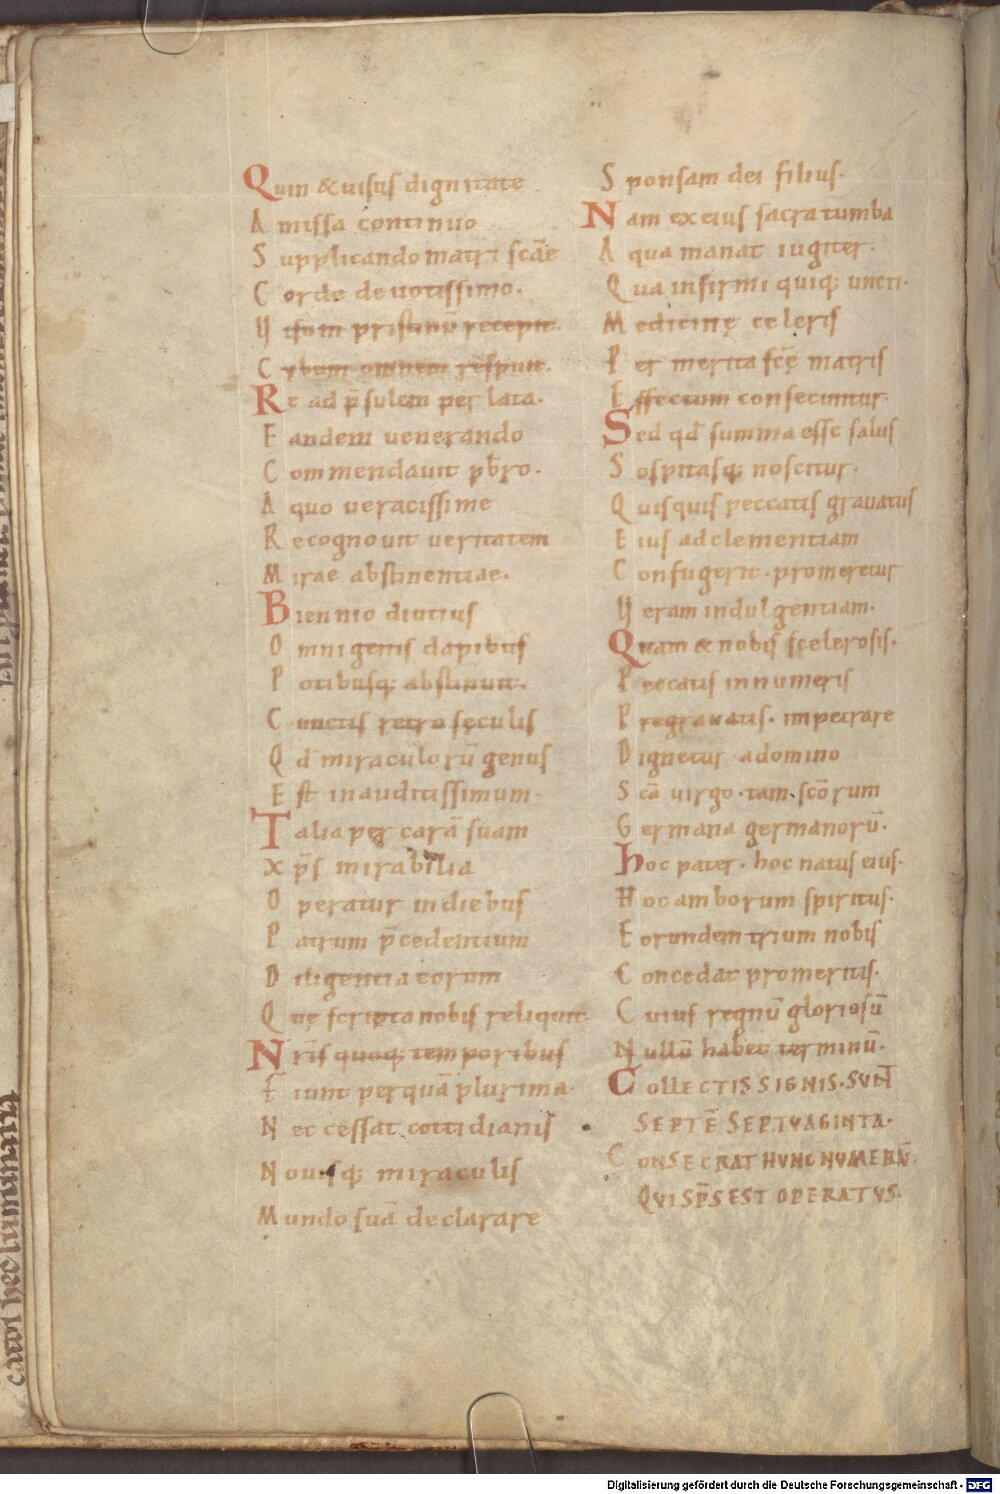 Quin & uisus dignitate
Amissa continuo
Supplicando matri scāe
Corde deuotissimo.
Vsum pristinū recepit.
Cybum omnem respuit.
Re ad p̄sulem perlata.
Eandem uenerando
Commendauit pb̄ro.
A quo ueracissime
Recognouit ueritatem
Mirae abstinentiae.
Biennio diutius
Omnigenis dapibus
Potibusq; abstinuit.
Cunctis retro sęculis
Qd̄ miraculorū genus
Est inauditissimum.
Talia per carā suam
Xp̄s mirabilia
Operatur in diebus
Patrum p̄cedentium
Diligentia eorum
Quę scripta nobis reliquit
Nr̄is quoq; temporibus
Fiunt perquā plurima.
Nec cessat cottidianis
Nouisq; miraculis
Mundo suā declarare
Sponsam dei filius.
Nam ex eius sacra tumba
Aqua manat iugiter.
Qua infirmi quiq; uncti.
Medicinę celeris
Per merita scę̄ matris
Effectum consecuntur.
Sed qd̄ summa esse salus
Sospitasq; noscitur.
Quisquis peccatis grauatus
Eius ad clementiam
Confugerit. promeretur
Veram indulgentiam.
Quam & nobis scelerosis.
Peccatis innumeris
Pregrauatis. impetrare
Dignetur a domino
Scā uirgo. tam scōrum
Germana germanorū.
Hoc pater. hoc natus eius.
Hoc amborum spiritus.
Eorundem trium nobis
Concedat pro meritis.
Cuius regnū gloriosū
Nullū habet terminū.
COLLECTIS SIGNIS. SVNT
SEPTĒ SEPTVAGINTA.
CONSECRAT HVNC NVMERŪ
QVI SP̄S EST OPERATVS.
Digitalisierung gefördert durch die Deutsche Forschungsgemeinschaft - DFG